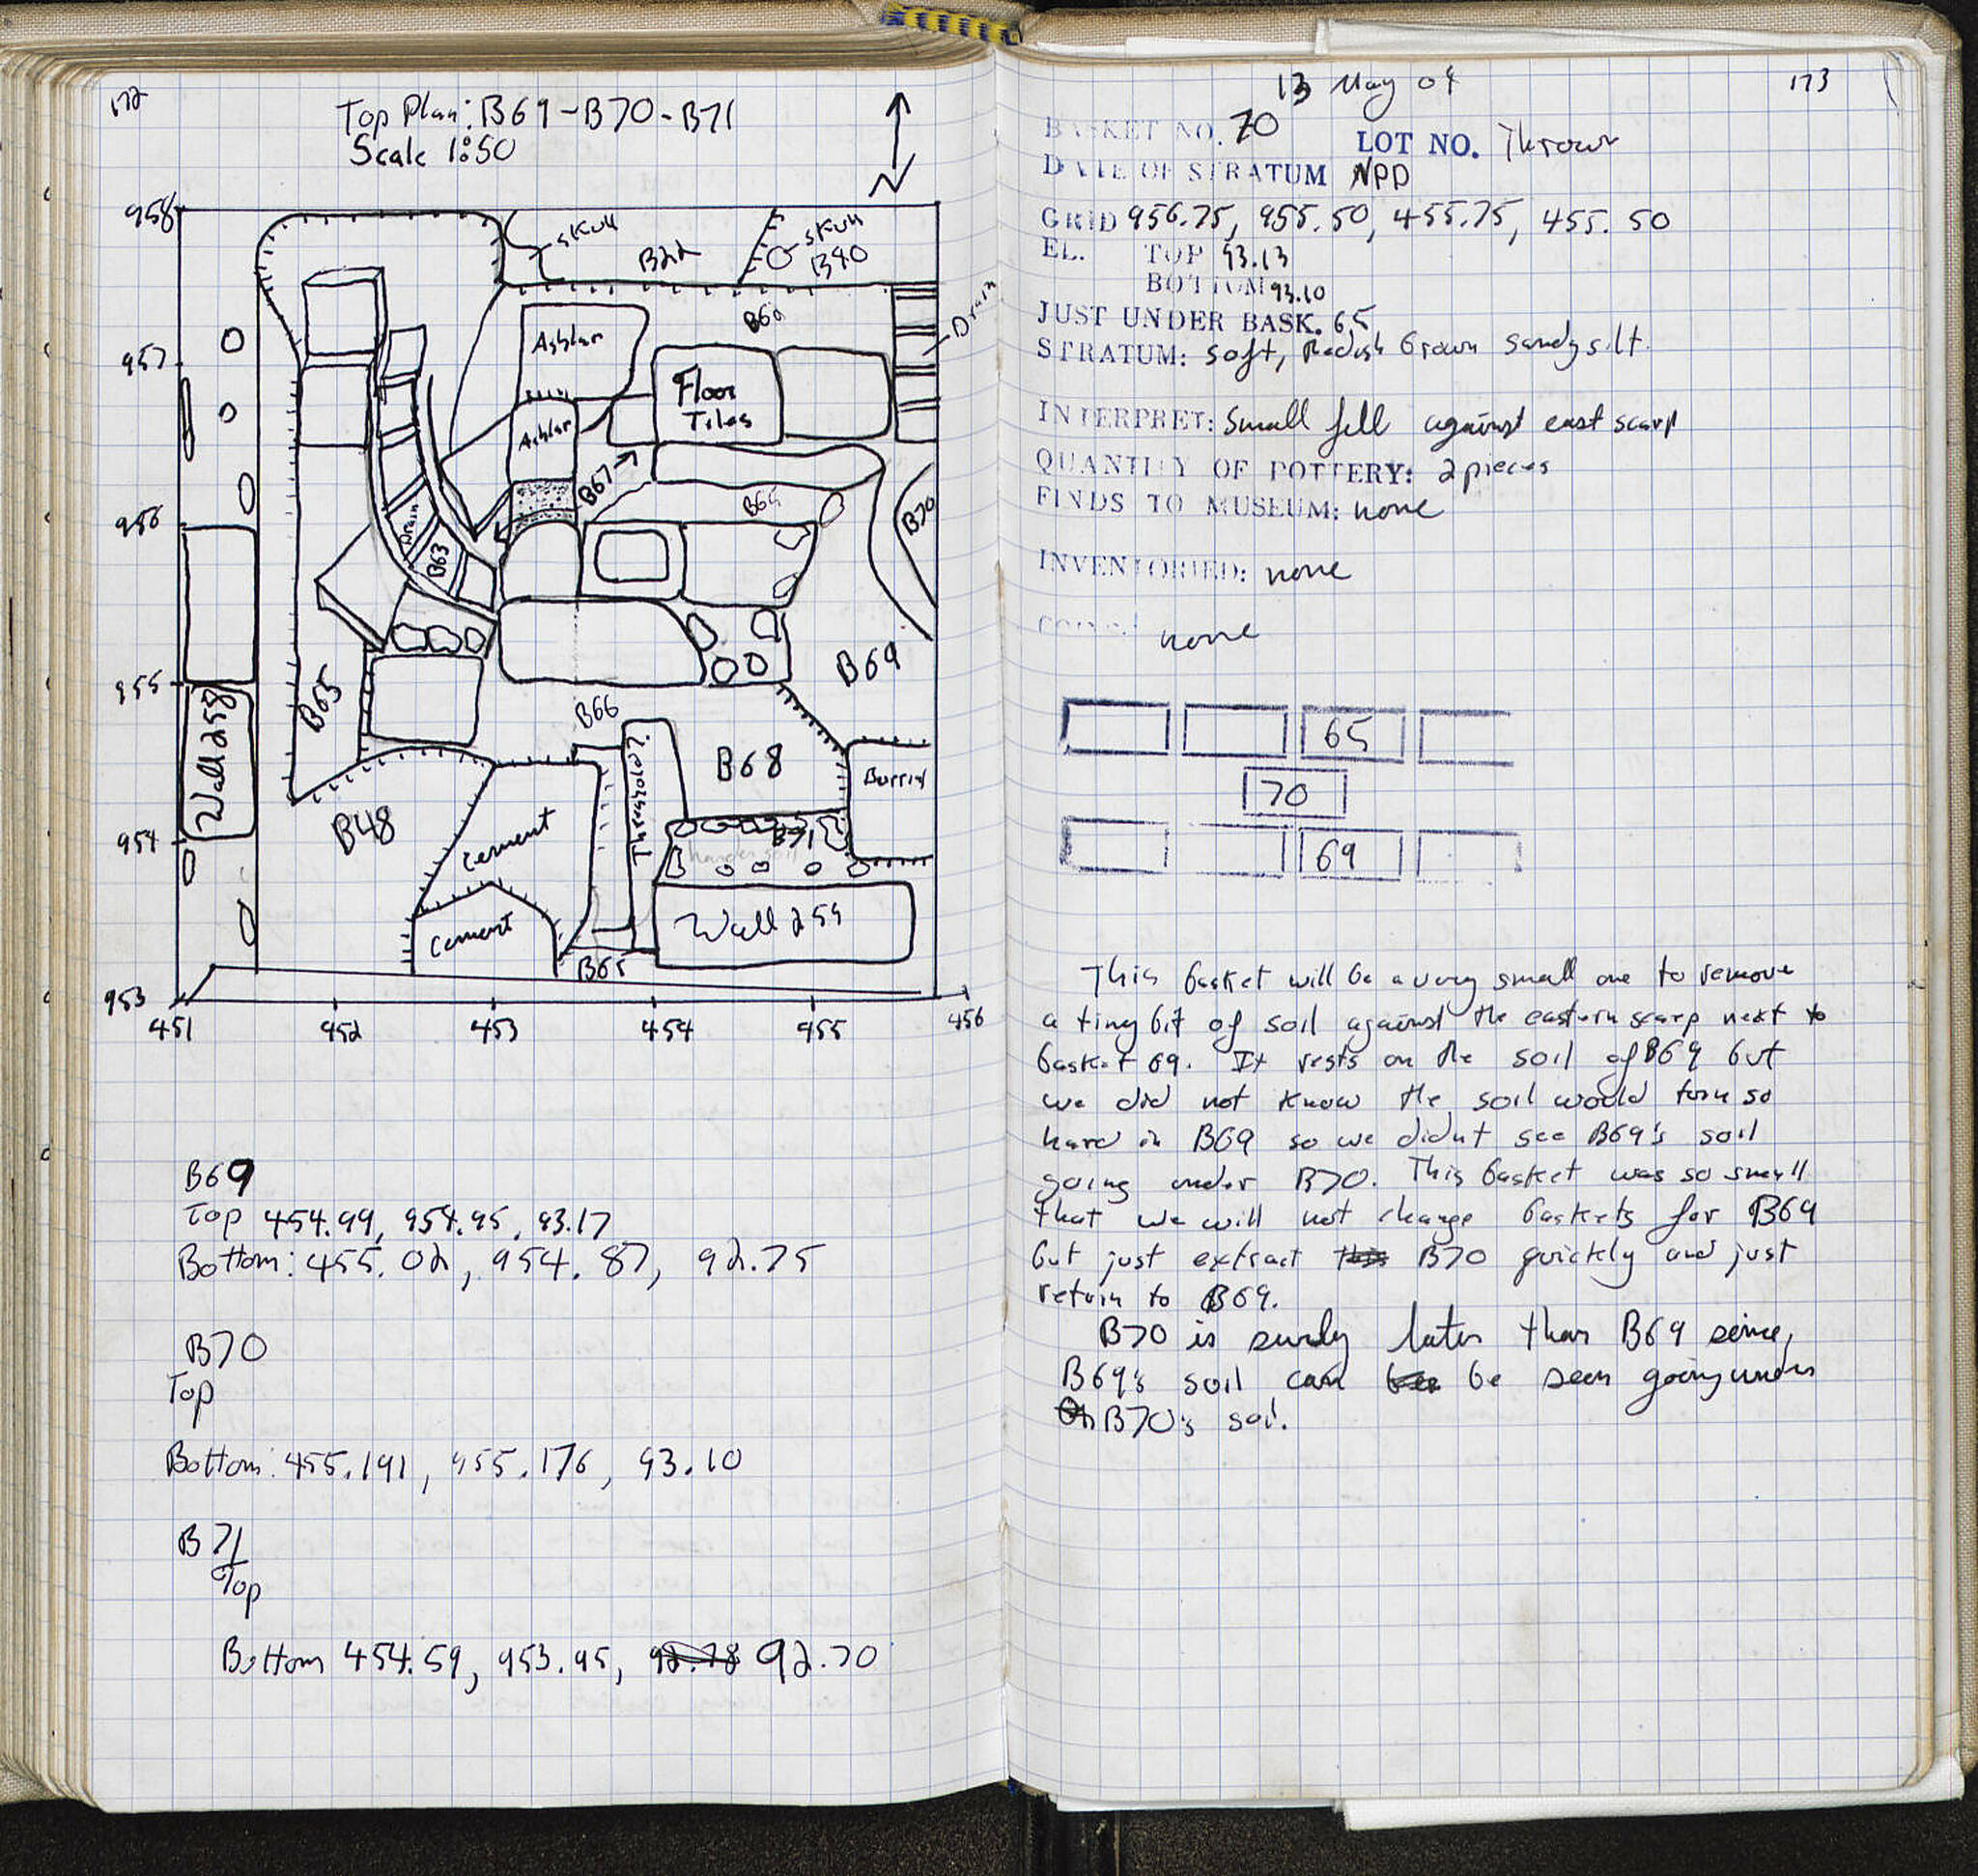 172
Top Plan: B69-B70-B71
Scale 1:50
958
957
956
955
954
953
451
452
453
454
455
456
skull
B22
skull
B40
Drain
Ashlar
B69
Floor
Tiles
Ashlar
B67
B69
B70
Drain
B63
B69
B65
B66
Wall 258
Threshold?
B68
Burial
B48
Cement
B71
harder soil
Cement
Wall 259
B65
B69
Top 454.99, 954.95, 93.17
Bottom: 455.02, 954.87, 92.75
B70
Top
Bottom: 455.191, 955.176, 93.10
B71
Top
Bottom 454.59, 953.95, 92.78 92.70
13 May 04
173
BASKET NO. 70
LOT NO. Thrown
DATE OF STRATUM NPD
GRID 956.75, 955.50, 455.75, 455.50
EL. TOP 93.13
BOTTOM 93.10
JUST UNDER BASK. 65
STRATUM: soft, Redish brown sandy silt.
INTERPRET: Small fill against east scarp
QUANTITY OF POTTERY: 2 pieces
FINDS TO MUSEUM: none
INVENTORIED: none
none
65
70
69
This basket will be a very small one to remove
a tiny bit of soil against the eastern scarp next to
basket 69. It rests on the soil of B69 but
we did not know the soil would turn so
hard in B69 so we didnt see B69's soil
going under B70. This basket was so small
that we will not change baskets for B69
but just extract this B70 quickly and just
return to B69.
B70 is surely later than B69 since,
B69's soil can be seen going under
B70's soil.